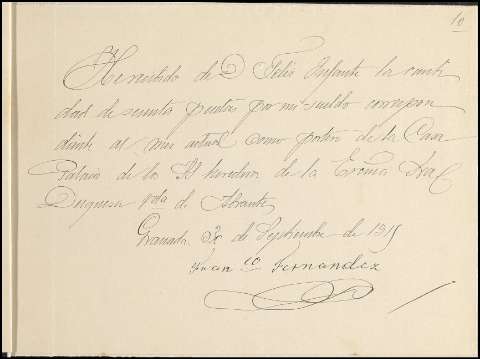 10
He recibido de D. Felix Infante la canti
dad de sesenta pesetas por mi sueldo correspon
diente al mes actual como portero de la Casa
Palacio de los herederos de la Excma Sra
Duquesa de Abrantes
Granada 30 de Septiembre de 1915
Juan Fernandez